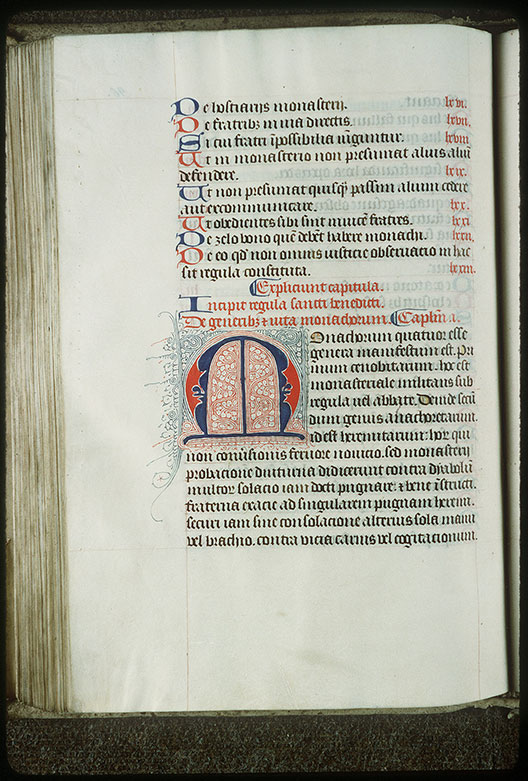 De hostiarijs monasterij. lxvi.
De fratribꝫ in uia directis. lxvii.
Si cui fratri īpossibilia iūguntur. lxviii
Ut in monasterio non presumat alius aliū
defendere. lxix.
Ut non presumat quisqꝫ passim alium cedere
aut excommunicare. lxx.
Ut obedientes sibi sint inuicē fratres. lxxi
De zelo bono quē debēt habere monachi. lxxii.
De eo qd non omnis iusticie obseruatio in hac
sit regula constituta. lxxiii.
Expliciunt capitula.
Incipit regula sancti benedicti.
De generibꝫ ⁊ uita monachorum. Caplm .i.
Monachorum quatuor esse
genera manifestum est. Pri
mum cenobitarum. hoc est
monasteriale militans sub
regula uel abbate. Deinde secū
dum genus anachoretarum
id est heremitarum: hor qui
non conuersionis feruore nouicio. sed monasterij
probacione diuturna didicerunt contra dyabolū
multor solacio iam docti pugnare: ⁊ bene īstructi.
fraterna exacie ad singularem pugnam heremi.
securi iam sine consolacione alterius sola manu
vel brachio. contra vicia carnis vel cogitacionum.